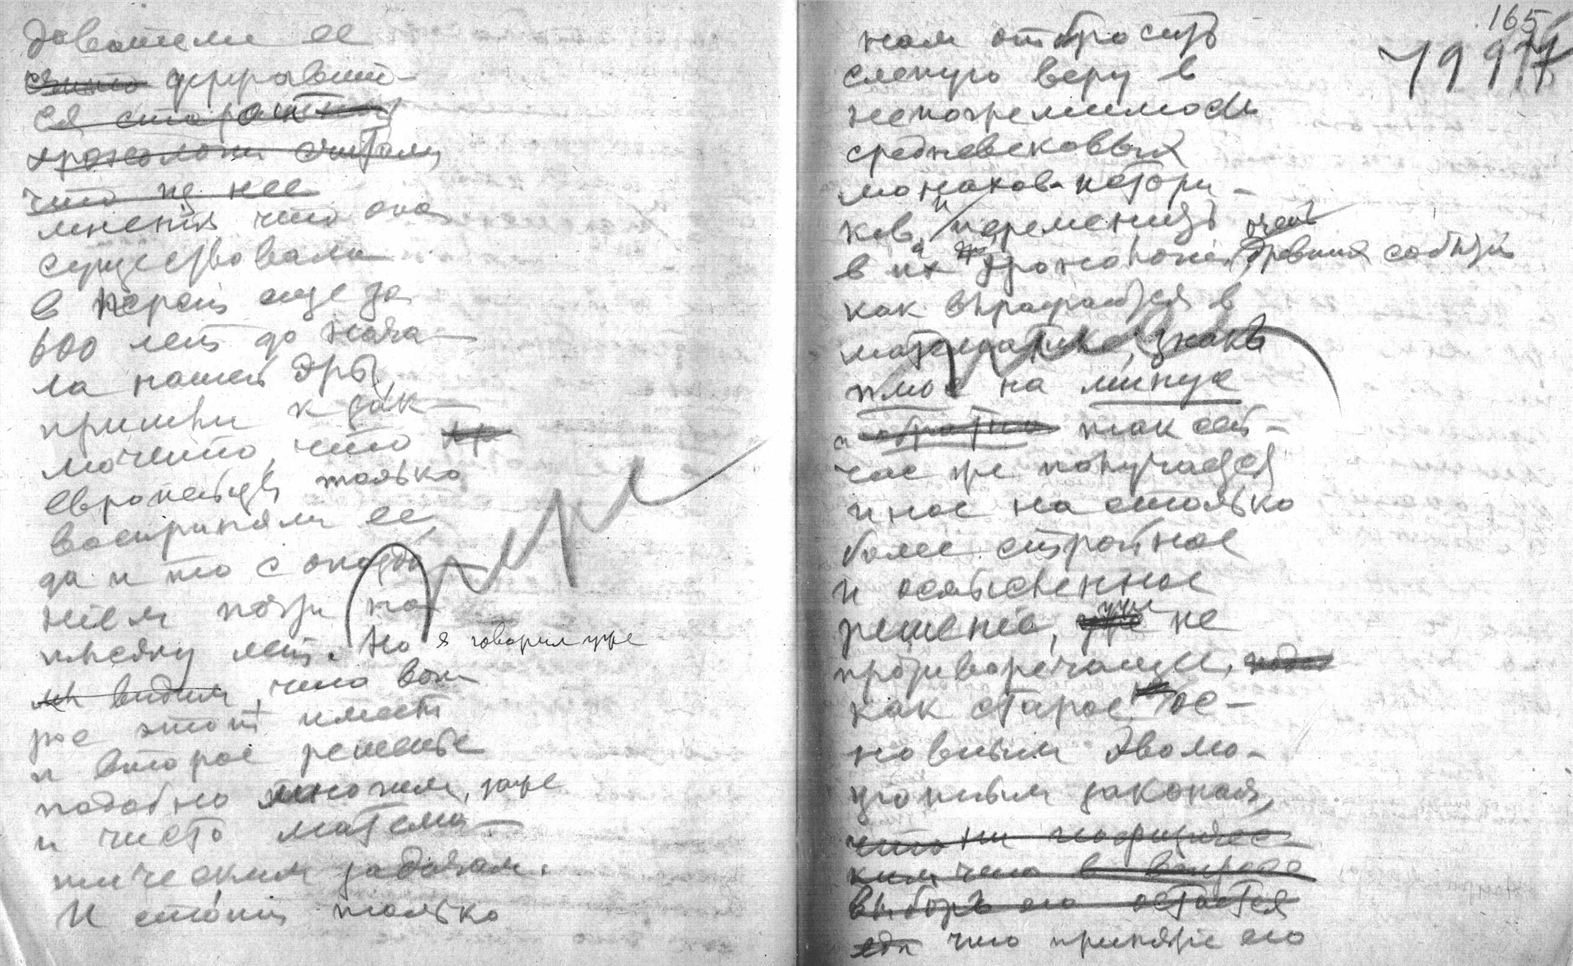 дователи ее
державши-
ся старой
хронологии считали,
что не нее
мнения что она
существовала
в Персии еще за
600 лет до нача-
ла нашей эры,
пришли к зак-
лючению, что
европейцы только
восприняли ее,
да и то с опозда
нием почти на
тысячу лет. Но я говорил уже
мы видим, что воп
рос этот имеет
и второе решение
подобно многим, даже
и чисто матема-
тическим задачам.
И стоит только
165
нам отбросить
слепую веру в
непогрешимость
средневековых
монахов-истори-
ков, и переменить
в их хронологии древния события
как выражаются в
математике, знакъ
плюс на минус
и обратно так сей-
час же получается
иное на столько
более стройное
и осмысленное
решение, не
противоречащее,
как старое ос-
новным эволю-
ционным законам,
что ни
выборъ его остается
что приняв его